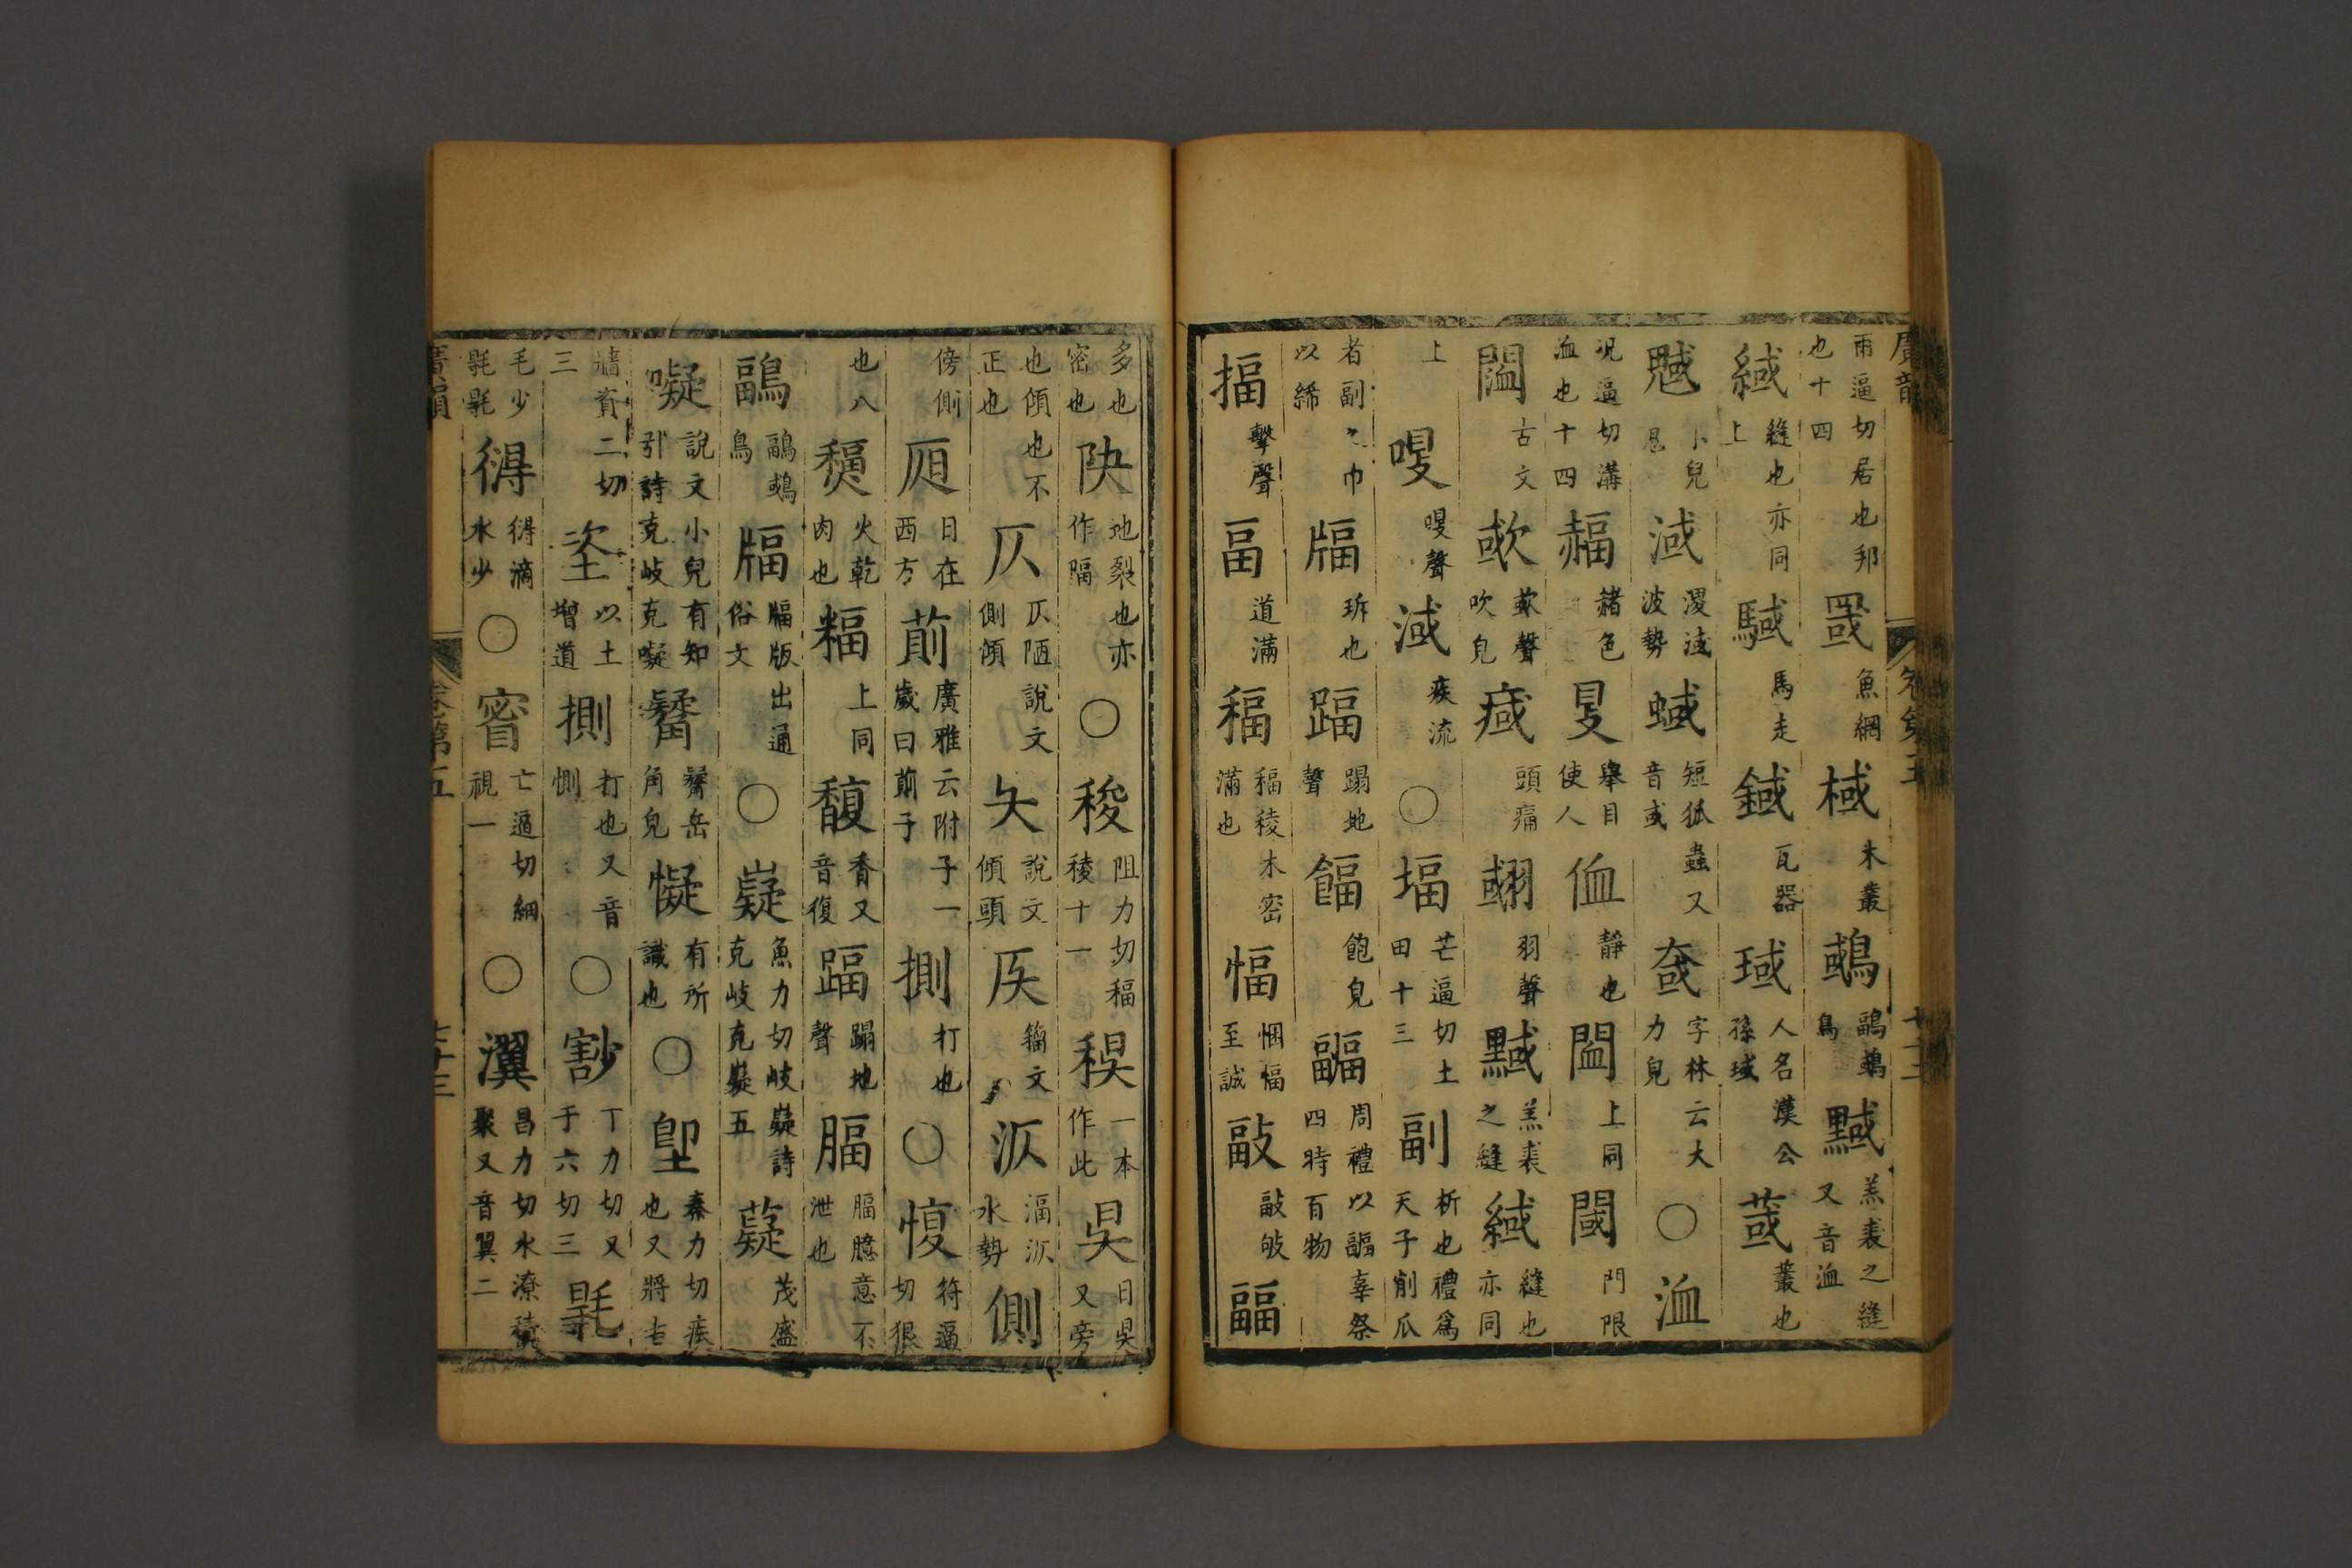 廣韻
卷第五
雨逼切居也邦也十四 罭 魚網 棫 木叢 䳼 鶝䳼鳥 黬 羔裘之縫又音洫
緎 縫也亦同上 駥 馬走 鋮 瓦器 琙 人名漢公孫琙 蒧 叢也
魊 小兒鬼 淢 㵐淢波勢 蜮 短狐蟲又音或 戫 字林云大力皃 ○ 洫
況逼切溝洫也十四 䵗 赭色 𥄎 舉目使人 侐 靜也 閪 上同 閾 門限
䦗 古文 欰 欰聲吹皃 㽣 頭痛 翝 羽聲 黬 羔裘之縫 緎 縫也亦同
上 嗖 嗖聲 淢 疾流 ○ 堛 芒逼切土田十三 副 析也禮爲天子削瓜
者副之巾以絺 牐 㭊也 踾 蹋地聲 餔 飽皃 疈 周禮以疈辜祭四時百物
揊 擊聲 畐 道滿 稫 稫稜木密滿也 愊 悃愊至誠 副 副皱 疈
多也密也 㽸 地裂也亦作㽬 ○ 稄 阻力切稫稜十一 稷 一本作此 昃 日昃又旁
也傾也不正也 仄 仄陋說文側傾 夨 說文傾頭 𠨮 籀文 汳 湢汳水勢 側
傍側 𣅔 日在西方 萴 廣雅云附子一歲曰萴子 揤 打也 ○ 愎 符逼切狠
也八 𤎅 火乾肉也 䊧 上同 馥 香又音復 踾 蹋地聲 腷 腷臆意不泄也
鶝 鶝䳼鳥 牐 牐版出通俗文 ○ 嶷 魚力切岐嶷詩克岐克嶷五 薿 茂盛
噯 說文小兒有知引詩克岐克噯 䰯 䰯岳角皃 懝 有所識也 ○ 堲 秦力切疾也又將吉
牆資二切三 垐 以土增道 揤 打也又音惻 ○ 㔀 丁力切又于六切三 㲈
毛少㲈㲈 㝵 㝵滴水少 ○ 䁵 亡逼切細視一 ○ 瀷 昌力切水潦積聚又音翼二
廣韻
卷第五
七十三